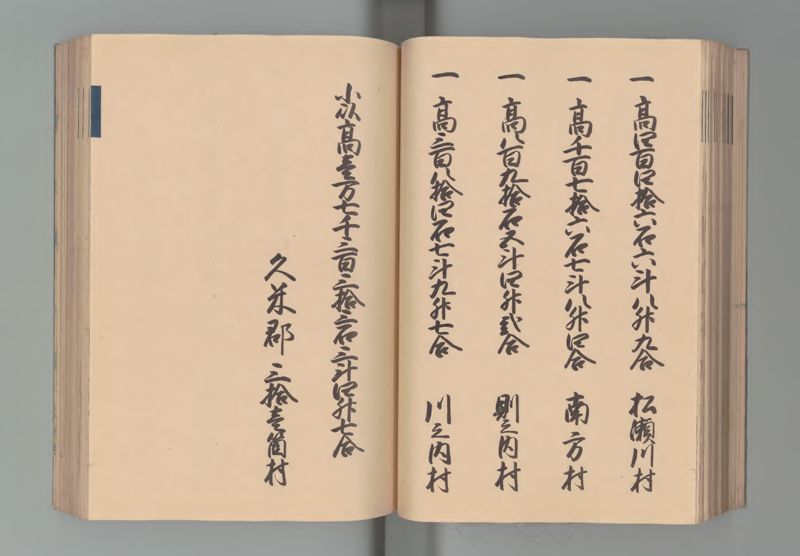 一 高四百四拾六石六斗八升九合 松瀬川村
一 高千百七拾六石七斗八升四合 南方村
一 高八百九拾石五斗四升弐合 則之内村
一 高三百八拾四石七斗九升七合 川之内村
小以高壱万七千三百三拾三石三斗四升七合
久米郡 三拾壱箇村